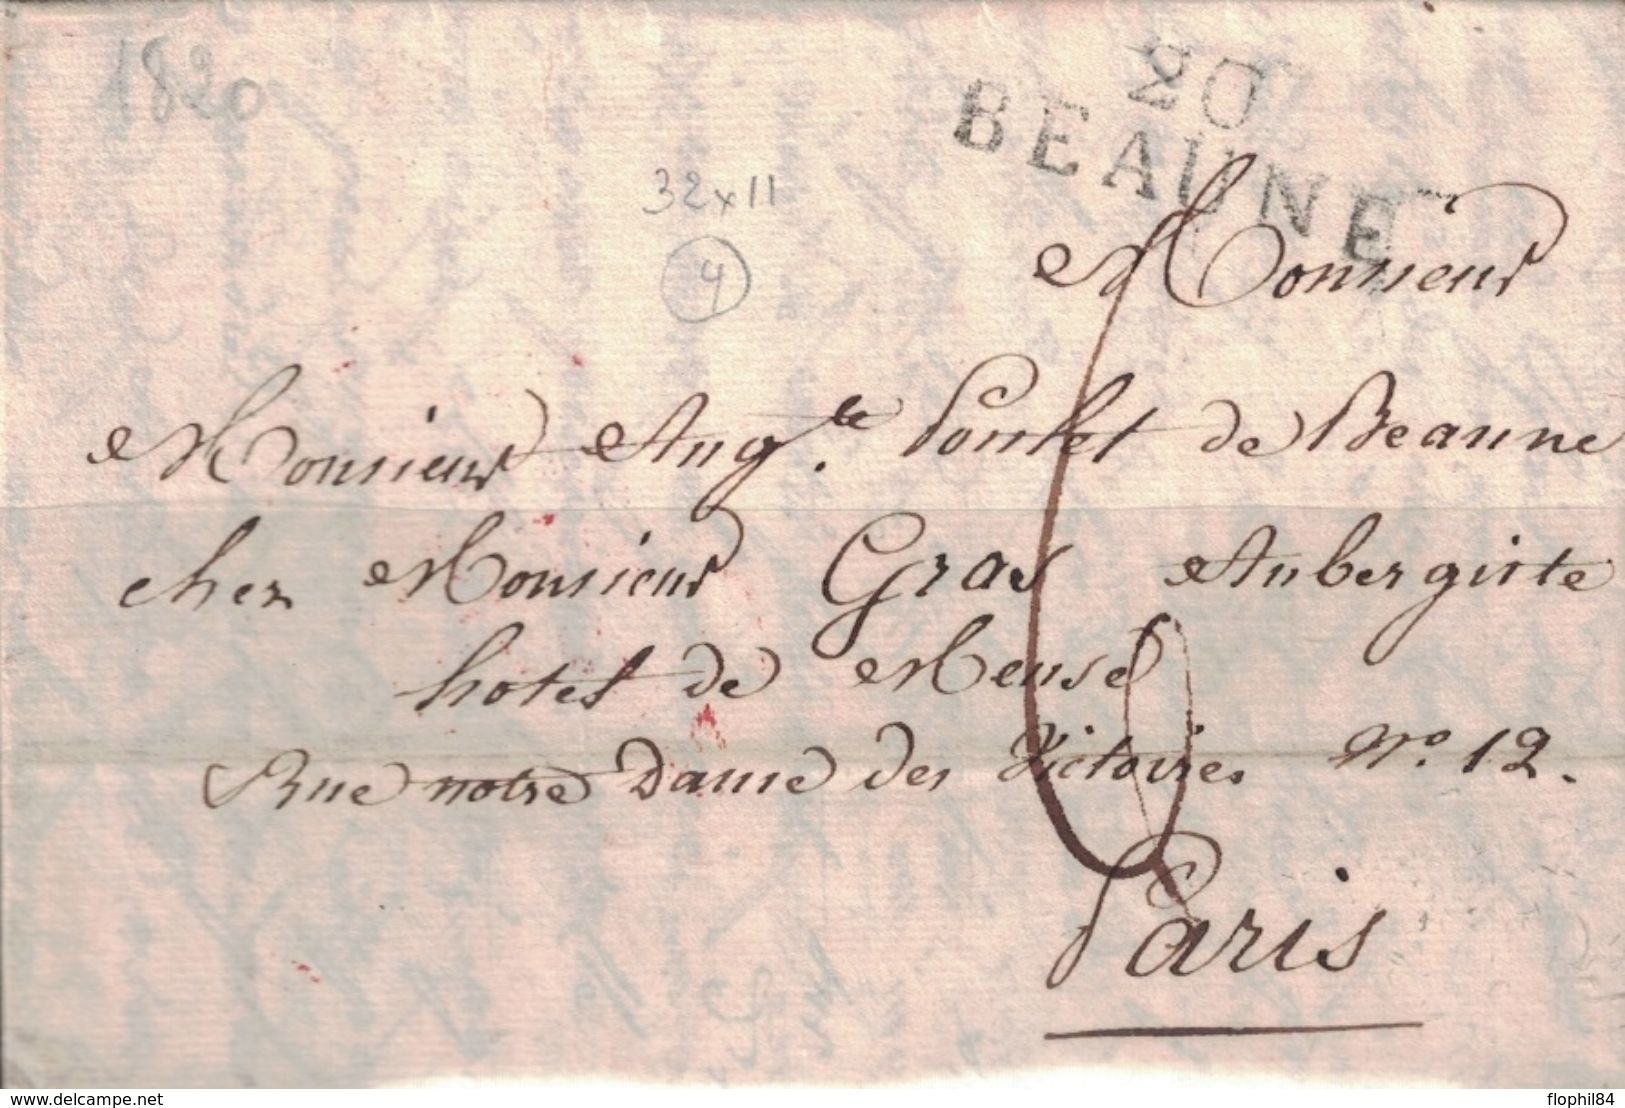 1820
20
BEAUNE
32 x 11
4
Monsieur
Monsieur Aug.te Poulet de Beaune
chez Monsieur Gras Aubergiste
hotel de Meuse
Rue notre Dame des Victoires No. 12.
6
Paris
www.delcampe.net
flophil84